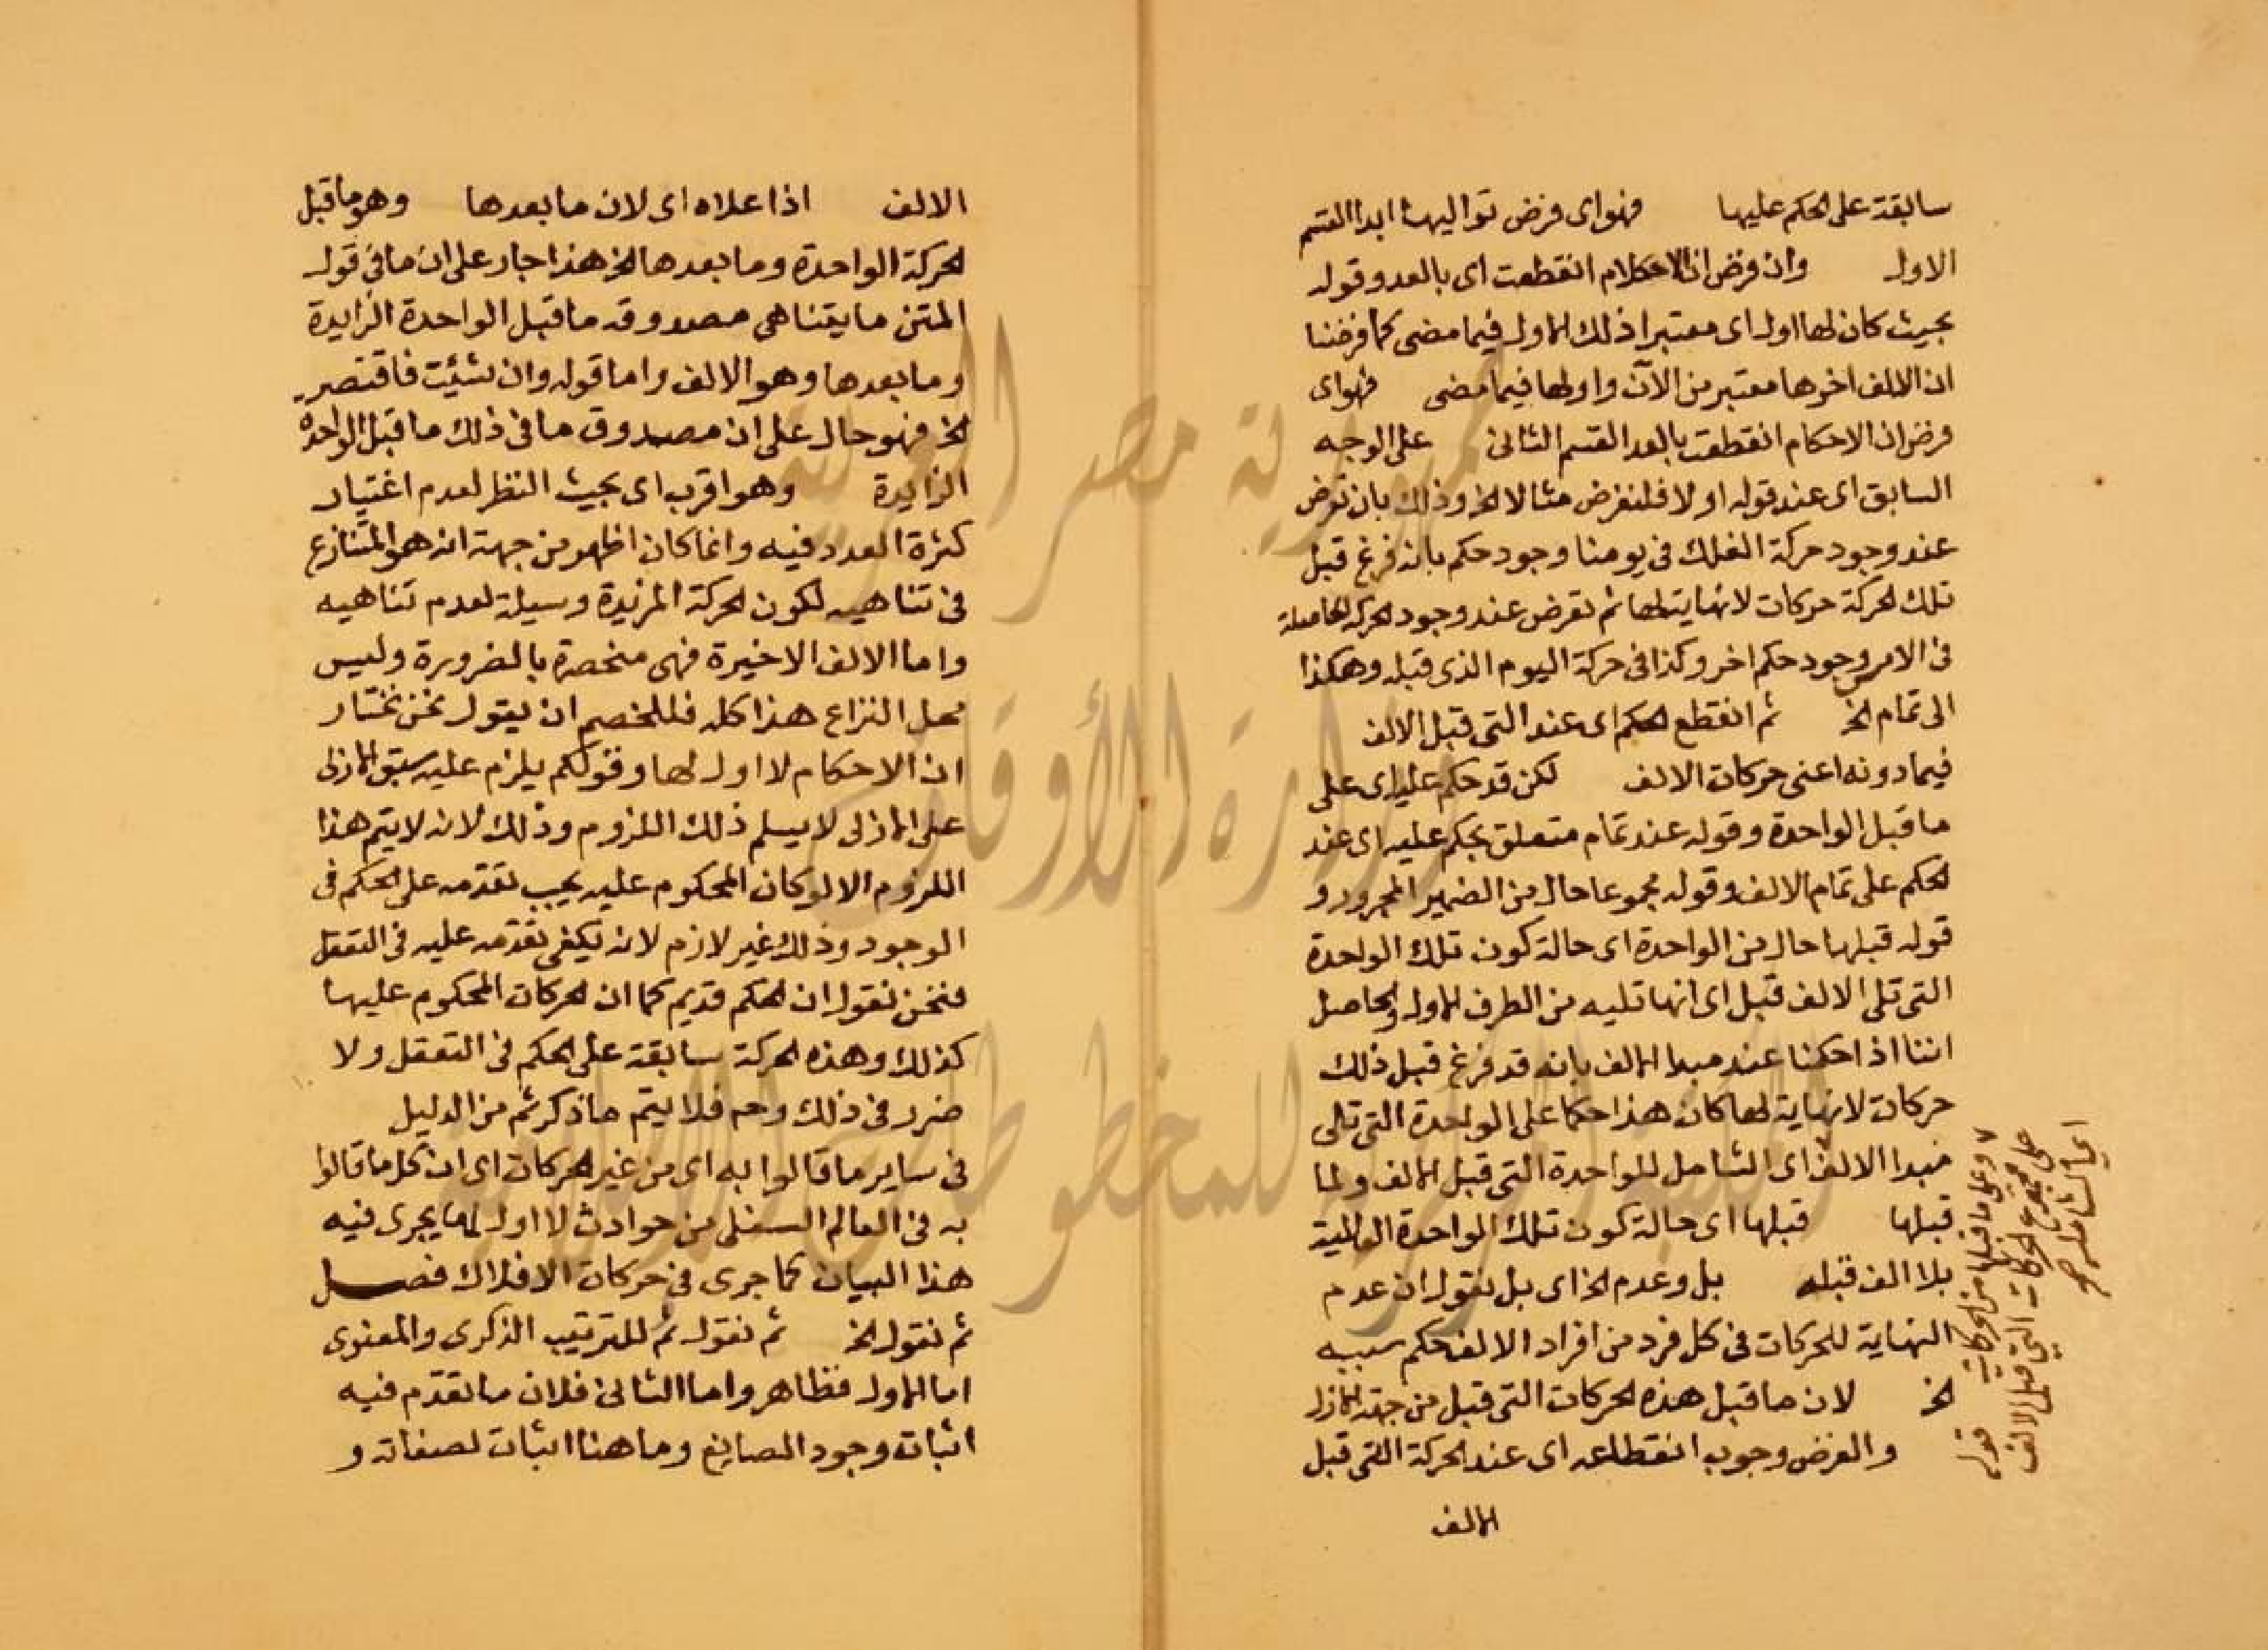 سابقة على الحكم عليها فهو اى فرض تواليها ابدا القسم
الاول وان فرض ان الاحكام انقطعت اى بالعد وقوله
بحيث كان لها اول اى معتبرا ذلك الاول فيما مضى كما فرضنا
ان الالف اخرها معتبر من الآن واولها فيما مضى فهو اى
فرض ان الاحكام انقطعت بالعد القسم الثانى على الوجه
السابق اى عند قوله اولا فلنفرض مثالا الخ وذلك بان تفرض
عند وجود حركة الفلك فى يومنا وجود حكم بانه فرغ قبل
تلك الحركة حركات لا نهاية لها ثم تفرض عند وجود الحركة الحاصلة
فى الامس وجود حكم اخر وكذا فى حركة اليوم الذى قبله وهكذا
الى تمام الخ ثم انقطع الحكم اى عند التى قبل الالف
فيما دونه اعنى حركات الالف لكن قد حكم عليه اى على
ما قبل الواحدة وقوله عند تمام متعلق بحكم عليه اى عند
الحكم على تمام الالف وقوله مجموعا حال من الضمير المجرور و
قوله قبلها حال من الواحدة اى حالة كون تلك الواحدة
التى تلى الالف قبل اى انها تليه من الطرف الاول والحاصل
اننا اذا حكمنا عند مبدا الالف بانه قد فرغ قبل ذلك
حركات لا نهاية لها كان هذا حكما على الواحدة التى تلى
مبدا الالف اى الشامل للواحدة التى قبل الالف ولما
قبلها قبلها اى حالة كون تلك الواحدة التالية
بلا الف قبله بل وعدم الخ اى بل نقول ان عدم
النهاية للحركات فى كل فرد من افراد الالف حكم سببه
الخ لان ما قبل هذه الحركات التى قبل من جهة الازل
والفرض وجوب انقطاعه اى عند الحركة التى قبل
الالف
وعلى ما قبلها من الحركات قوله
على مجموع الحركات التى قبل الالف
اى الشاملة صح
الالف اذا علاه اى لان ما بعدها وهو ما قبل
الحركة الواحدة وما بعدها الخ هذا جار على ان ما فى قول
المتن ما يتناهى مصدوقه ما قبل الواحدة الزايدة
وما بعدها وهو الالف واما قوله وان شئت فاقتصر
الخ فهو حال على ان مصدوق ما فى ذلك ما قبل الواحدة
الزايدة وهو اقرب اى بحيث النظر لعدم اغتيار
كثرة العدد فيه وانما كان اظهر من جهة انه هو المتنازع
فى تناهيه لكون الحركة المزيدة وسيلة لعدم تناهيه
واما الالف الاخيرة فهى منحصرة بالضرورة وليس
محل النزاع هذا كله فللخصم ان يقول نحن نختار
ان الاحكام لا اول لها وقولكم يلزم عليه سبق الازلى
على الازلى لا يسلم ذلك اللزوم وذلك لانه لا يتم هذا
اللزوم الا لو كان المحكوم عليه يجب تقدمه على الحكم فى
الوجود وذلك غير لازم لانه يكفى تقدمه عليه فى التعقل
فنحن نقول ان الحكم قديم كما ان الحركات المحكوم عليها
كذلك وهذه الحركة سابقة على الحكم فى التعقل ولا
ضرر فى ذلك وح فلا يتم ما ذكر ثم من الدليل
فى ساير ما قالوا به اى من غير الحركات اى ان كل ما قالوا
به فى العالم السفلى من حوادث لا اول لها يجرى فيه
هذا البيان كما جرى فى حركات الافلاك فصل
ثم نقول الخ ثم نقول ثم للترتيب الذكرى والمعنوى
اما الاول فظاهر واما الثانى فلان ما تقدم فيه
اثبات وجود الصانع وما هنا اثبات لصفاته و
جمهورية مصر العربية
وزارة الأوقاف
المكتبة المركزية للمخطوطات الإسلامية